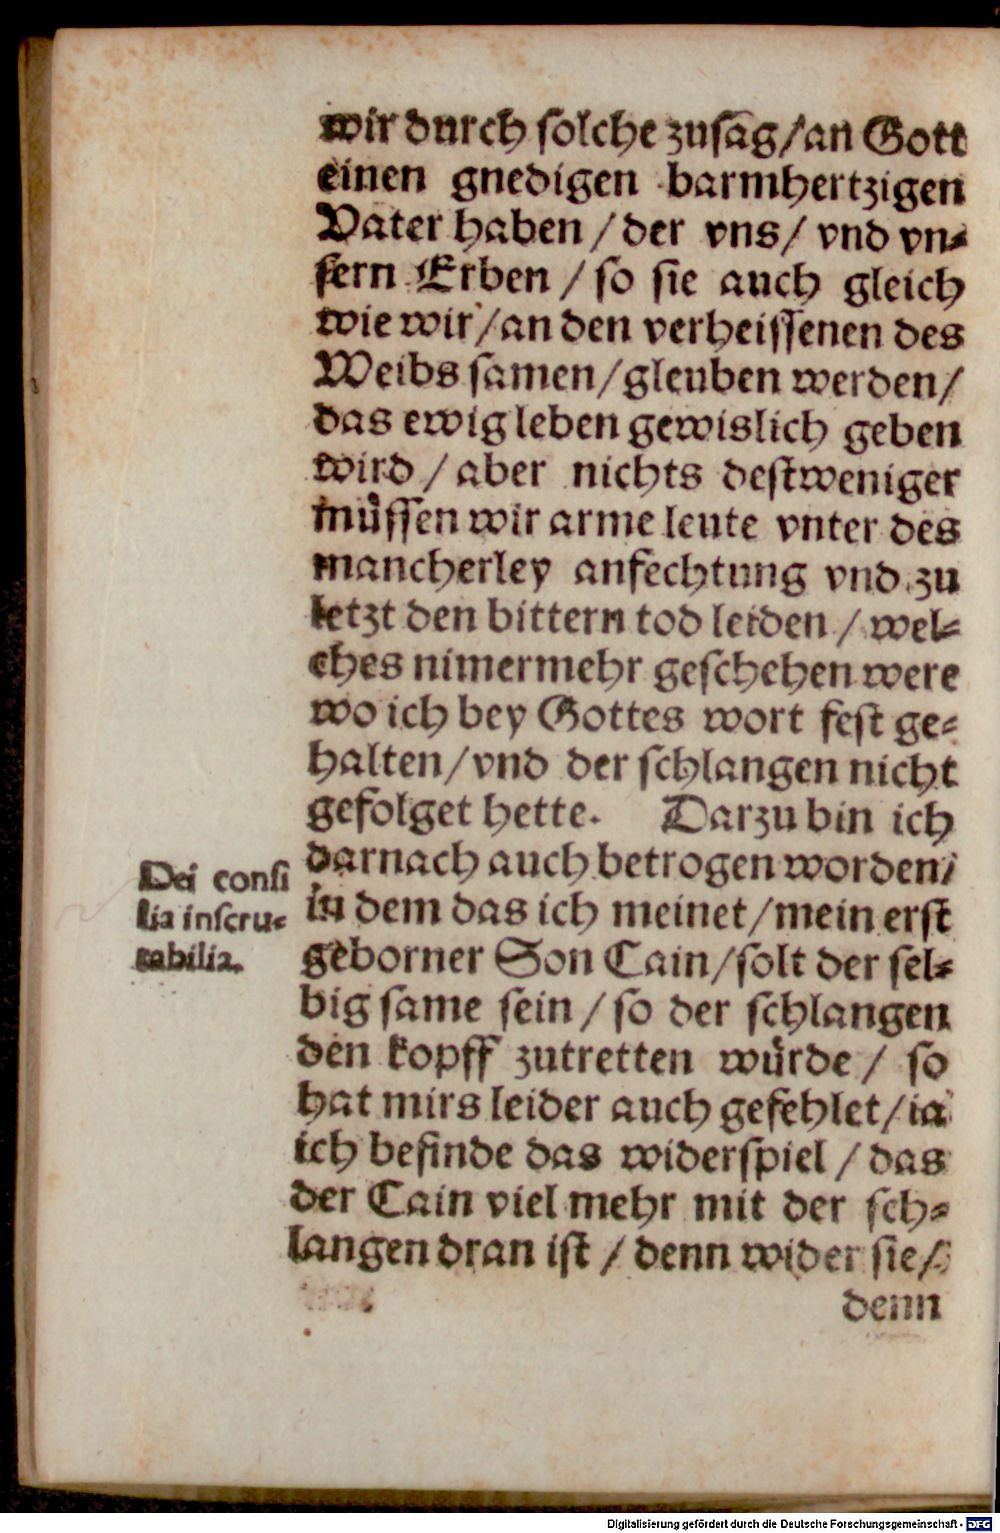 wir durch solche zusag/an Gott
einen gnedigen barmhertzigen
Vater haben / der vns/ vnd vn⸗
sern Erben / so sie auch gleich
wie wir/an den verheissenen des
Weibs samen/gleuben werden/
das ewig leben gewislich geben
wird / aber nichts destweniger
muͤssen wir arme leute vnter des
mancherley anfechtung vnd zu
letzt den bittern tod leiden / wel⸗
ches nimermehr geschehen were
wo ich bey Gottes wort fest ge⸗
halten/vnd der schlangen nicht
gefolget hette. Darzu bin ich
darnach auch betrogen worden/
in dem das ich meinet/mein erst
geborner Son Cain/solt der sel⸗
big same sein / so der schlangen
den kopff zutretten wuͤrde / so
hat mirs leider auch gefehlet/ia
ich befinde das widerspiel / das
der Cain viel mehr mit der sch⸗
langen dran ist / denn wider sie/
denn
Dei consi
lia inscru⸗
tabilia.
Digitalisierung gefördert durch die Deutsche Forschungsgemeinschaft - DFG